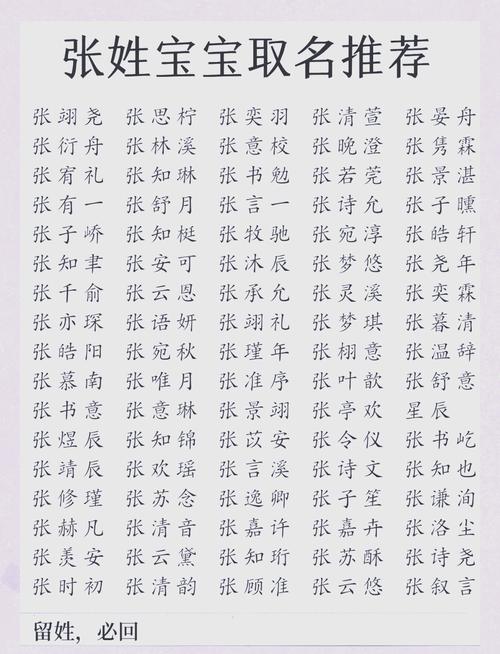 张姓宝宝取名推荐
张翊尧 张思柠 张奕羽 张清萱 张晏舟
张衍舟 张林溪 张意校 张晚澄 张隽霖
张宥礼 张知琳 张书勉 张若莞 张景湛
张有一 张舒月 张言一 张诗允 张子曛
张子峤 张知梃 张牧驰 张宛淳 张皓轩
张知聿 张安可 张沐辰 张梦悠 张尧年
张千俞 张云恩 张承允 张灵溪 张奕霖
张亦琛 张语妍 张翊礼 张梦琪 张暮清
张皓阳 张宛秋 张瑾年 张栩意 张温辞
张慕南 张唯月 张准序 张叶歆 张舒意
张书意 张意琳 张景翊 张亭欢 星辰
张煜辰 张知锦 张苡安 张令仪 张书屹
张靖辰 张欢瑶 张言溪 张诗文 张知也
张修瑾 张苏念 张逸卿 张子笙 张谦洵
张赫凡 张清音 张嘉许 张嘉卉 张洛尘
张羡安 张云黛 张知珩 张苏酥 张诗尧
张时初 张清韵 张顾准 张云悠 张叙言
留姓，必回